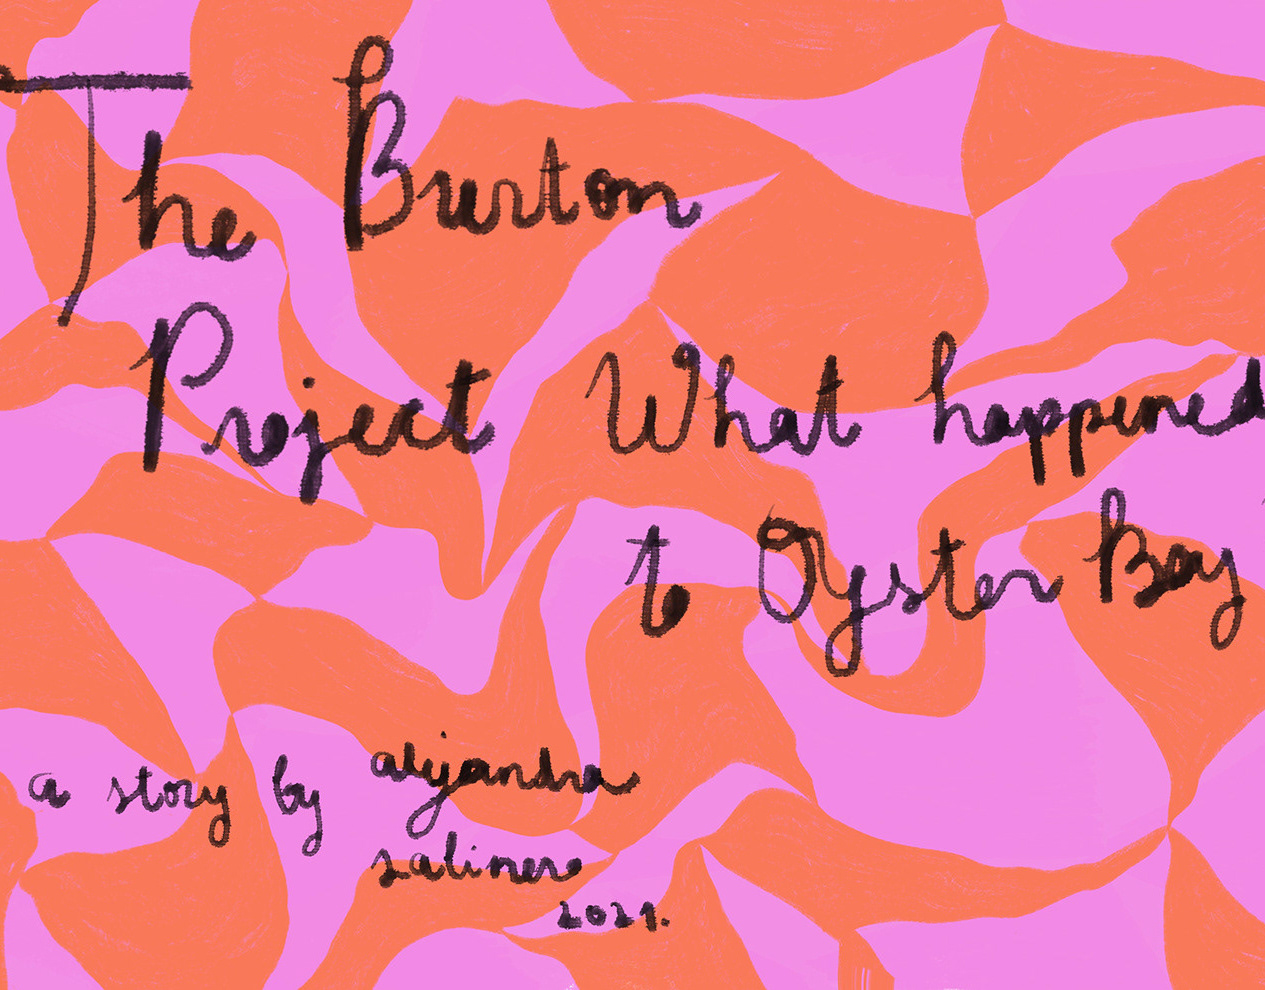 The Burton
Project What happened
to Oyster Boy
a story by alejandra
salinero
2021.